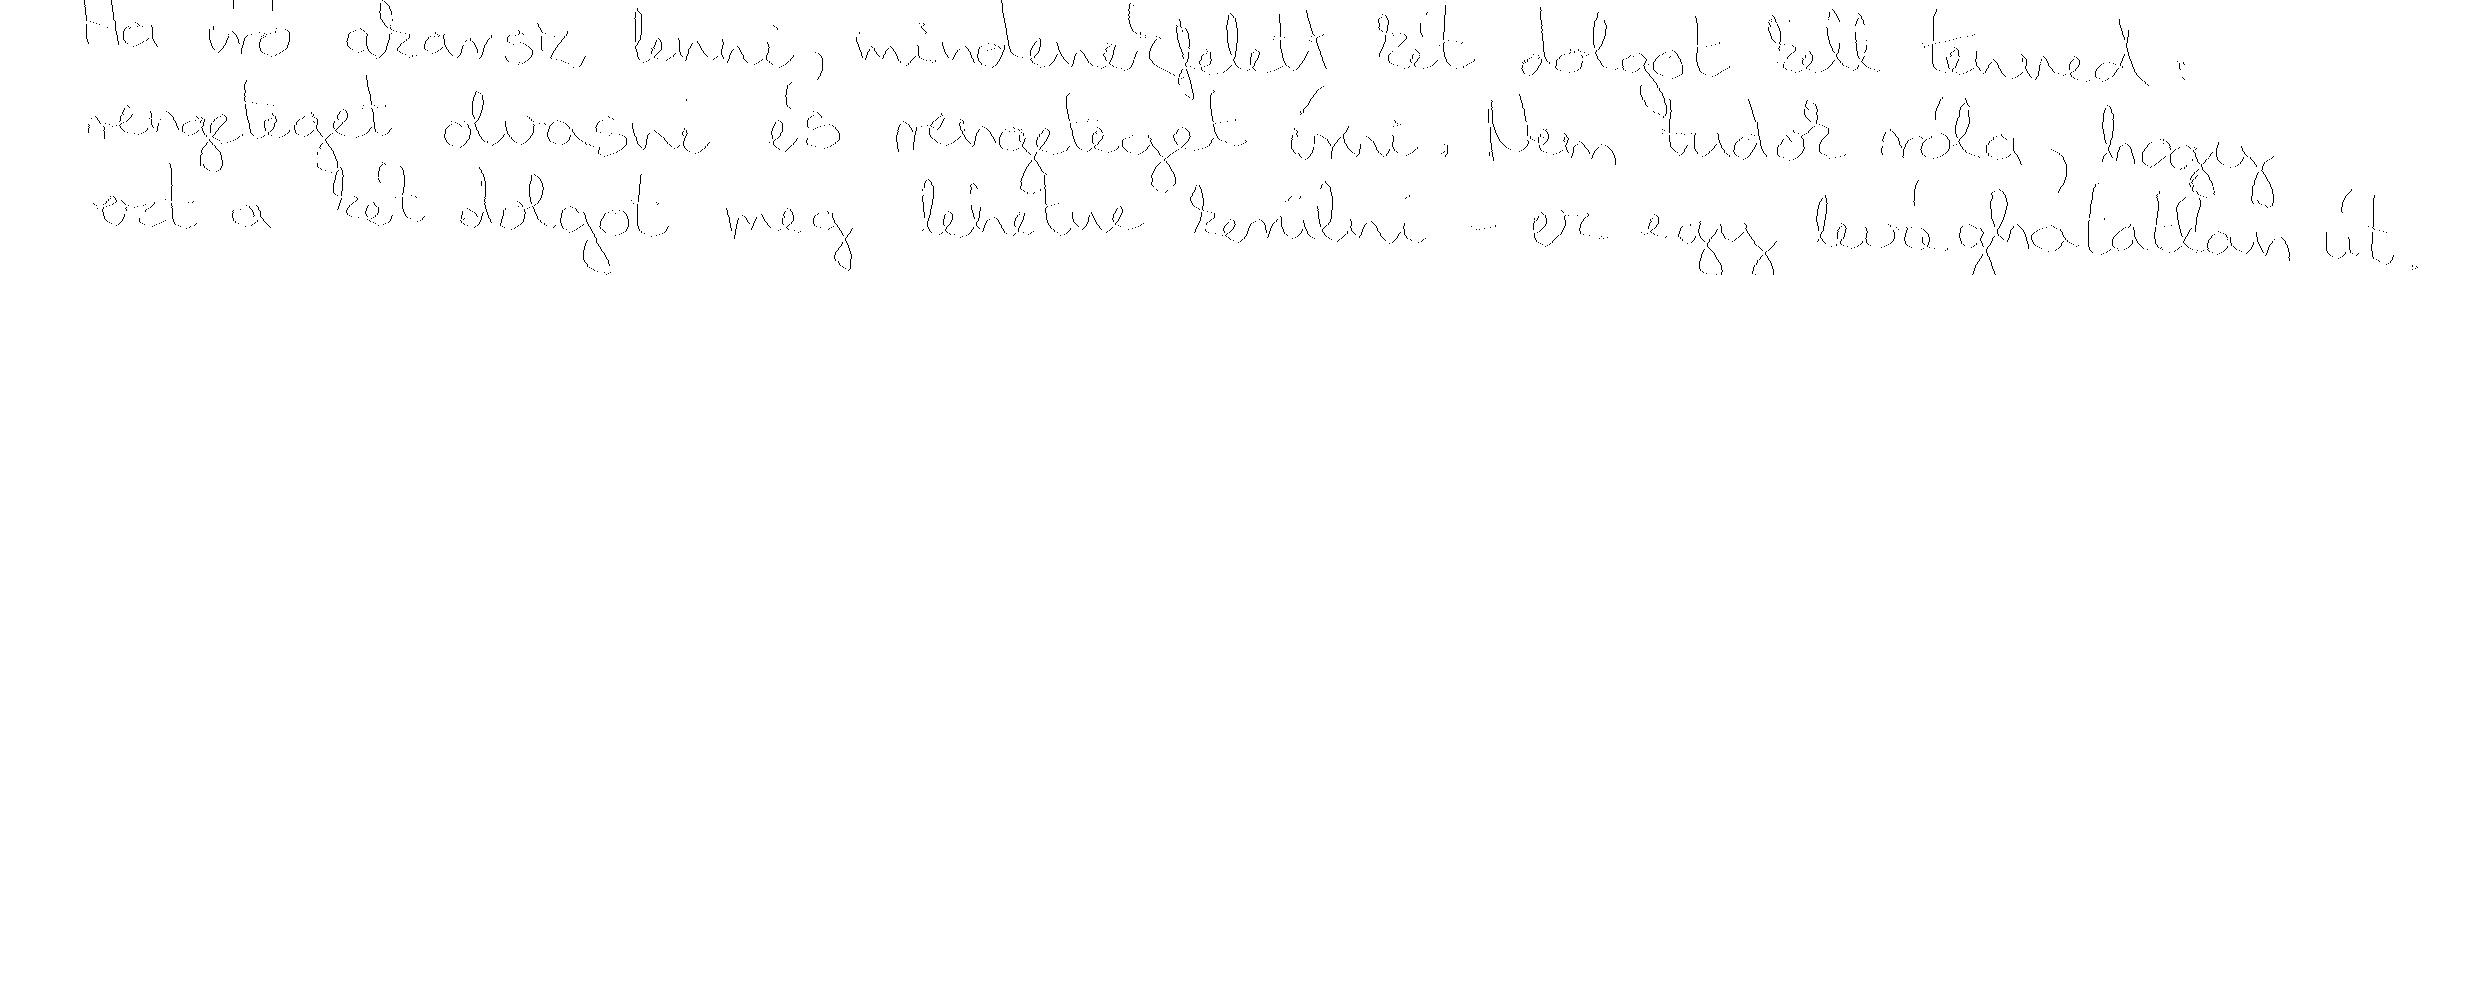 Ha író akarsz lenni, mindenekfelett két dolgot kell tenned:
rengeteget olvasni és rengeteget írni. Nem tudok róla, hogy
ezt a két dolgot meg lehetne kerülni - ez egy levághatatlan út.